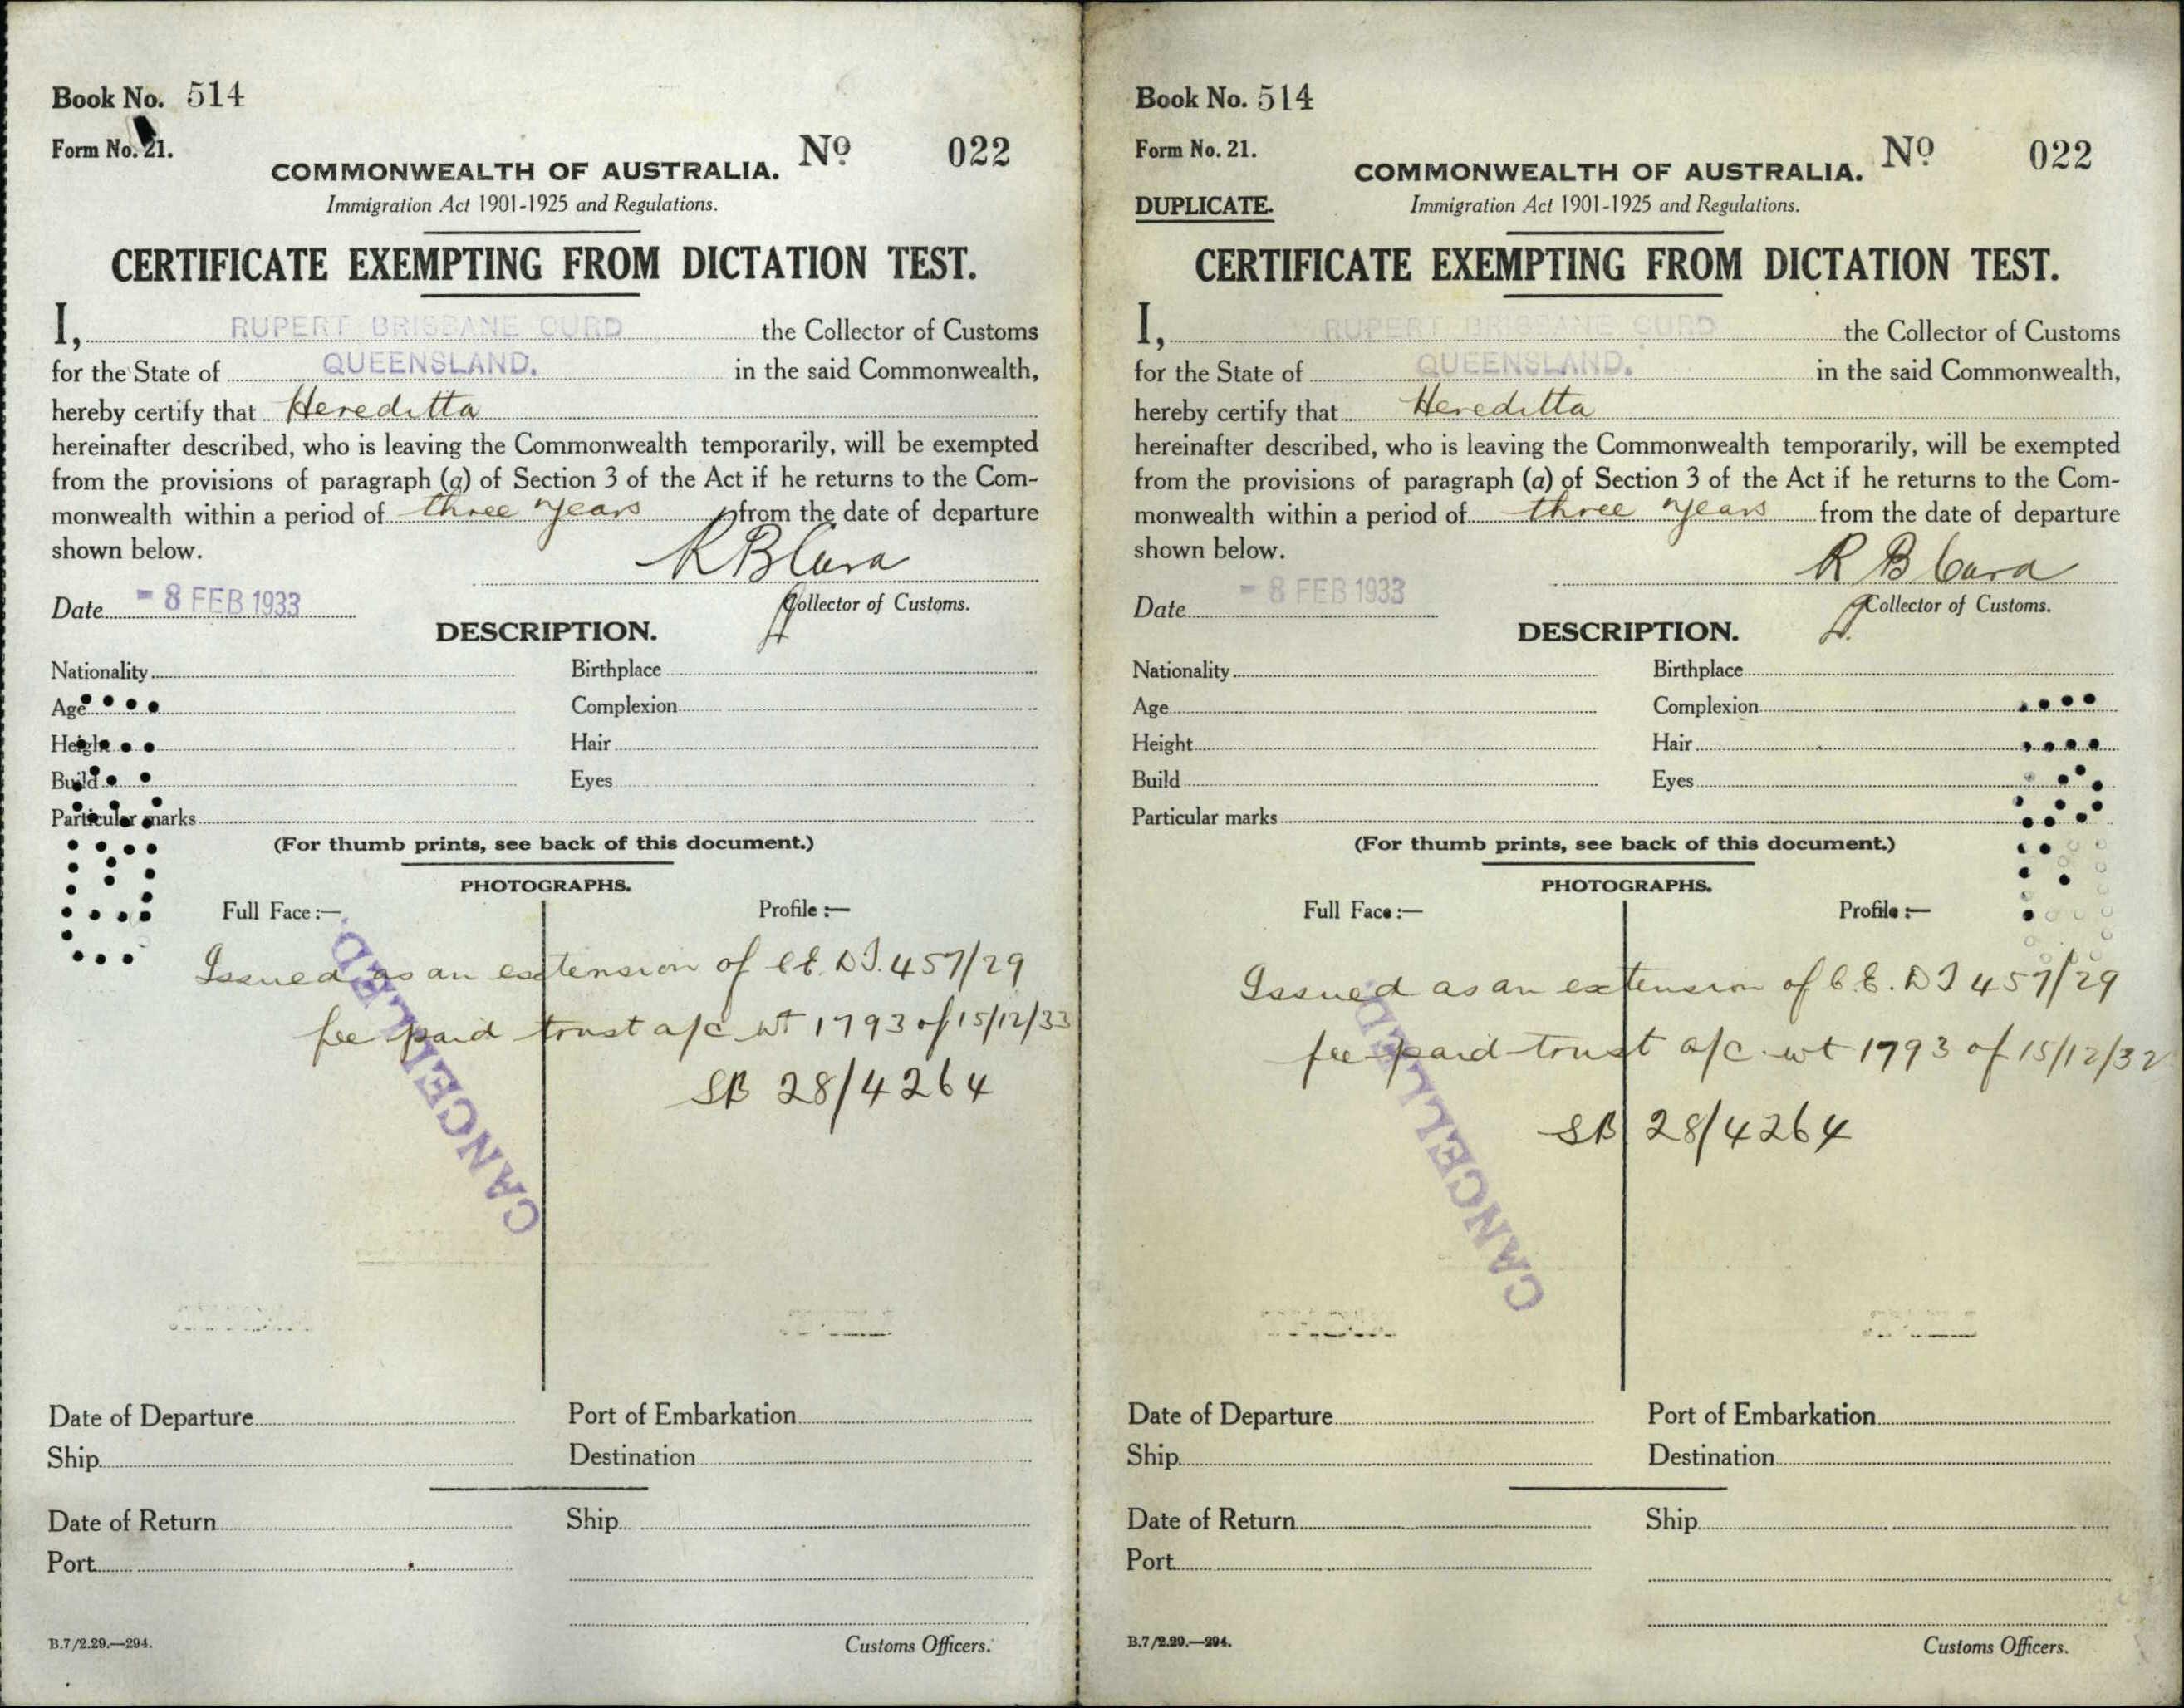 Book No. 514
Form No. 21.
COMMONWEALTH OF AUSTRALIA. Nº 022
Immigration Act 1901-1925 and Regulations.
CERTIFICATE EXEMPTING FROM DICTATION TEST.
I, RUPERT BRISBANE CURD the Collector of Customs
for the State of QUEENSLAND. in the said Commonwealth,
hereby certify that Hereditta
hereinafter described, who is leaving the Commonwealth temporarily, will be exempted
from the provisions of paragraph (a) of Section 3 of the Act if he returns to the Com-
monwealth within a period of three years from the date of departure
shown below.
R B Curd
Date - 8 FEB 1933
Collector of Customs.
DESCRIPTION.
Nationality Birthplace
Age Complexion
Height Hair
Build Eyes
Particular marks
(For thumb prints, see back of this document.)
PHOTOGRAPHS.
Full Face :— Profile :—
Issued as an extension of C.E.D.T. 457/29
fee paid trust a/c wt 1793 of 15/12/33
SB 28/4264
CANCELLED.
Date of Departure Port of Embarkation
Ship Destination
Date of Return Ship
Port
B.7/2.29.—294. Customs Officers.
Book No. 514
Form No. 21.
COMMONWEALTH OF AUSTRALIA. Nº 022
DUPLICATE. Immigration Act 1901-1925 and Regulations.
CERTIFICATE EXEMPTING FROM DICTATION TEST.
I, RUPERT BRISBANE CURD the Collector of Customs
for the State of QUEENSLAND. in the said Commonwealth,
hereby certify that Hereditta
hereinafter described, who is leaving the Commonwealth temporarily, will be exempted
from the provisions of paragraph (a) of Section 3 of the Act if he returns to the Com-
monwealth within a period of three years from the date of departure
shown below.
R B Curd
Date - 8 FEB 1933
Collector of Customs.
DESCRIPTION.
Nationality Birthplace
Age Complexion
Height Hair
Build Eyes
Particular marks
(For thumb prints, see back of this document.)
PHOTOGRAPHS.
Full Face :— Profile :—
Issued as an extension of C.E.D T 457/29
fee paid trust a/c wt 1793 of 15/12/32
SB 28/4264
CANCELLED
Date of Departure Port of Embarkation
Ship Destination
Date of Return Ship
Port
B.7/2.29.—294. Customs Officers.